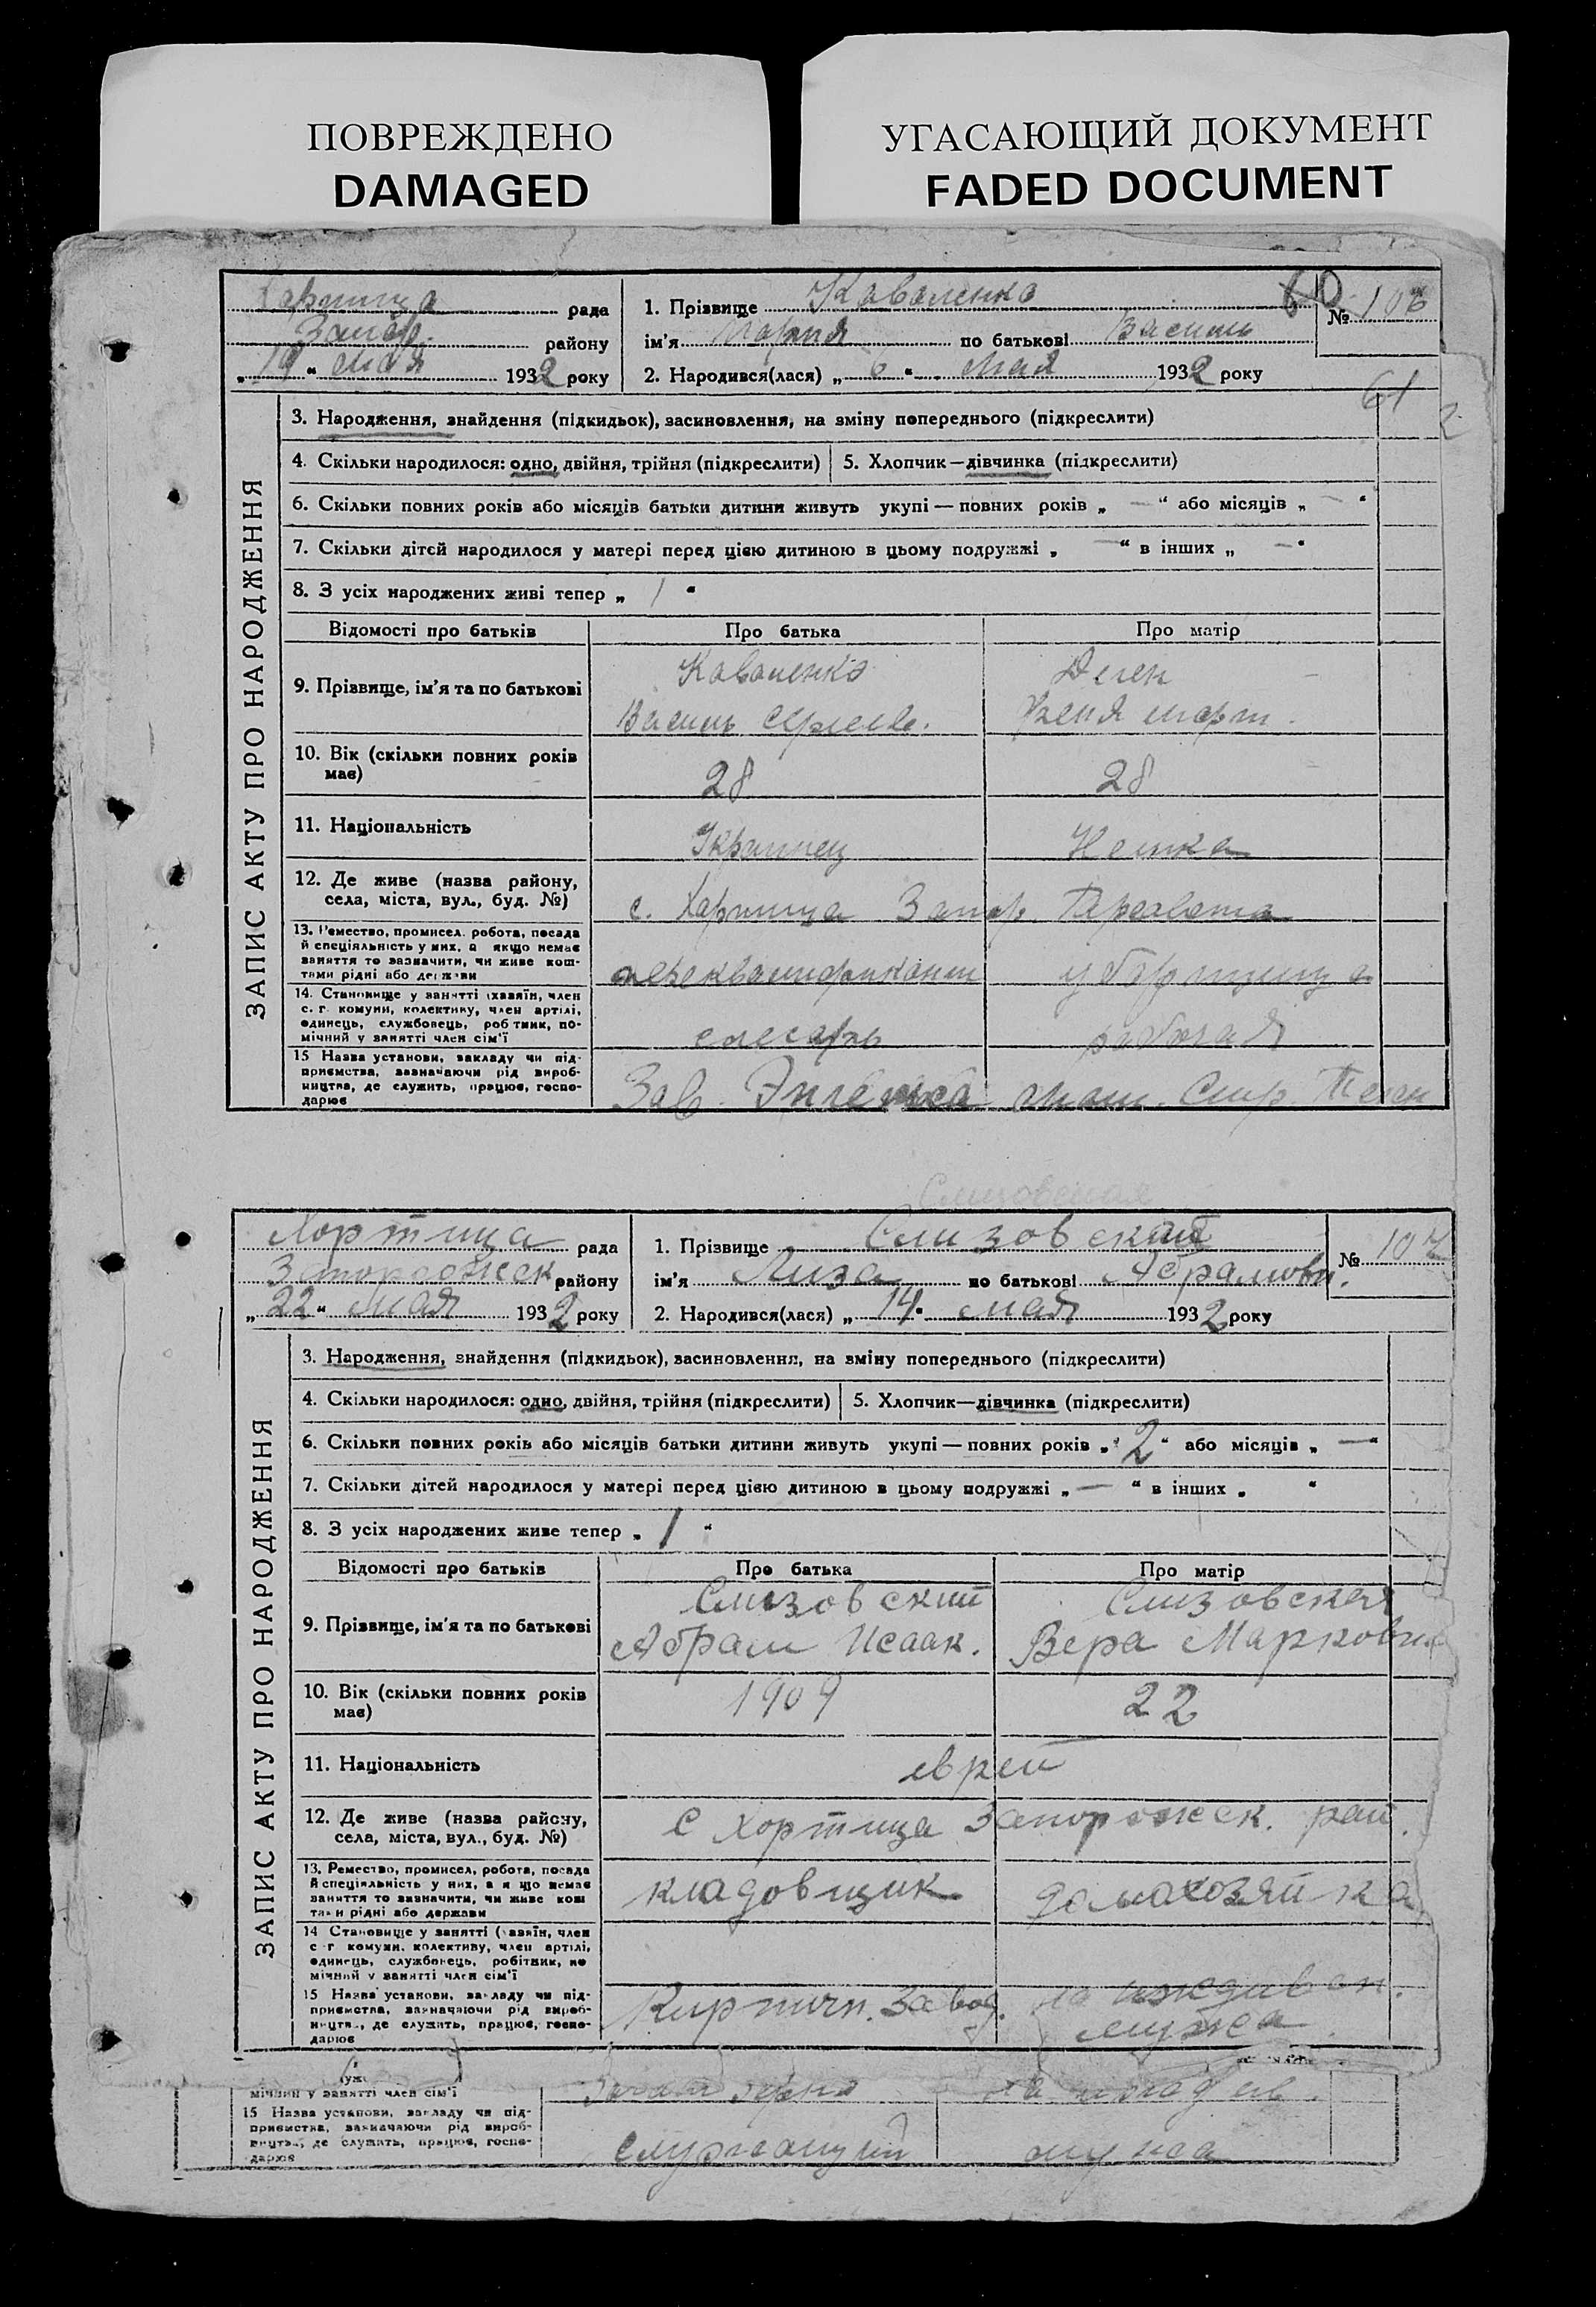 ПОВРЕЖДЕНО
DAMAGED
УГАСАЮЩИЙ ДОКУМЕНТ
FADED DOCUMENT
рада
Запор. району
„19“ мая 1932 року
1. Прізвище Коваленко
ім'я Мария по батькові Васили
2. Народився(лася) „6“ мая 1932 року
60
№ 106
61
ЗАПИС АКТУ ПРО НАРОДЖЕННЯ
3. Народження, знайдення (підкидьок), засиновлення, на зміну попереднього (підкреслити)
4. Скільки народилося: одно, двійня, трійня (підкреслити) 5. Хлопчик—дівчинка (підкреслити)
6. Скільки повних років або місяців батьки дитини живуть укупі — повних років „ — “ або місяців „ — “
7. Скільки дітей народилося у матері перед цією дитиною в цьому подружжі „ — “ в інших „ — “
8. З усіх народжених живі тепер „ 1 “
Відомості про батьків Про батька Про матір
9. Прізвище, ім'я та по батькові
Коваленко
Василь
Деген
Женя март.
10. Вік (скільки повних років
має)
28 28
11. Національність
Украинец Немка
12. Де живе (назва району,
села, міста, вул., буд. №)
с. Хортица Запор.
13. Ремество, промисел. робота, посада
й спеціяльність у них, а якщо немає
заняття то зазначити, чи живе кош-
тами рідні або держави
уборщица
14. Становище у занятті (хазяїн, член
с.г. комуни, колективу, член артілі,
одинець, службовець, робітник, по-
мічний у занятті член сім'ї
слесарь рабочая
15 Назва установи, закладу чи під-
приємства, зазначаючи рід вироб-
ництва, де служить, працює, госпо-
дарює
Зав. Энгельса
Слизовская
Хортица рада
Запорожск району
„22“ мая 1932 року
1. Прізвище Слизовская
ім'я Лиза по батькові Абрамовн.
2. Народився(лася) „14“ мая 1932 року
№ 107
ЗАПИС АКТУ ПРО НАРОДЖЕННЯ
3. Народження, знайдення (підкидьок), засиновлення, на зміну попереднього (підкреслити)
4. Скільки народилося: одно, двійня, трійня (підкреслити) 5. Хлопчик—дівчинка (підкреслити)
6. Скільки повних років або місяців батьки дитини живуть укупі — повних років „ 2 “ або місяців „ — “
7. Скільки дітей народилося у матері перед цією дитиною в цьому подружжі „ — “ в інших „ “
8. З усіх народжених живе тепер „ 1 “
Відомості про батьків Про батька Про матір
9. Прізвище, ім'я та по батькові
Слизовский
Абрам Исаак.
Слизовская
Вера Марковн.
10. Вік (скільки повних років
має)
1909 22
11. Національність
еврей
12. Де живе (назва району,
села, міста, вул., буд. №)
с Хортица Запорожск. рай.
13. Ремество, промисел, робота, посада
й спеціяльність у них, а якщо немає
заняття то визначити, чи живе кош
тами рідні або держави
кладовщик домахозяйка
14 Становище у занятті (хазяїн, член
с-г комуни, колективу, член артілі,
одинець, службовець, робітник, по
мічний у занятті член сім'ї
15 Назва установи, закладу чи під-
приємства, зазначаючи рід вироб-
ництва, де служить, працює, госпо-
дарює
Кирпичн. Завод. на иждивен.
мужа
мічний у занятті член сім'ї
15 Назва установи, закладу чи під-
приємства, зазначаючи рід вироб-
ництва, де служить, працює, госпо-
дарює
Служащий мужа